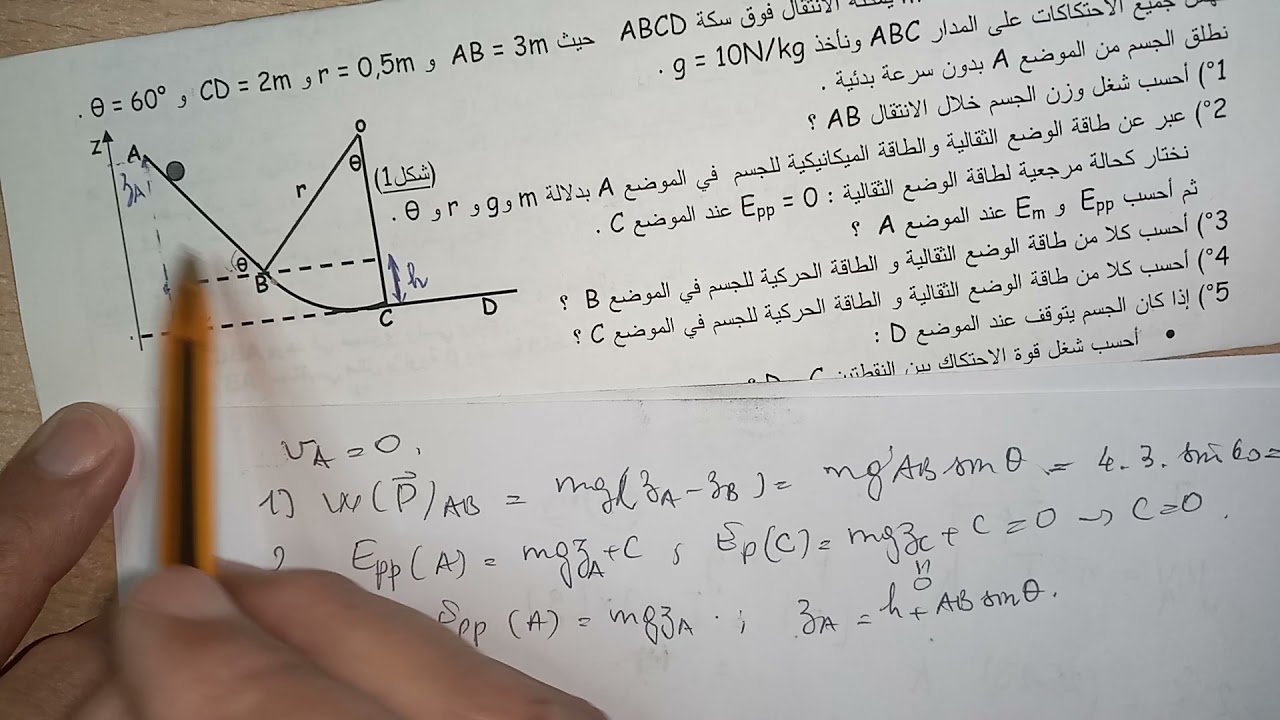 يمكنه الانتقال فوق سكة ABCD حيث AB = 3m و r = 0,5m و CD = 2m و θ = 60° .
جميع الاحتكاكات على المدار ABC ونأخذ g = 10N/kg .
نطلق الجسم من الموضع A بدون سرعة بدئية .
1°) أحسب شغل وزن الجسم خلال الانتقال AB ؟
2°) عبر عن طاقة الوضع الثقالية والطاقة الميكانيكية للجسم في الموضع A بدلالة m و g و r و θ .
نختار كحالة مرجعية لطاقة الوضع الثقالية : Epp = 0 عند الموضع C .
ثم أحسب Epp و Em عند الموضع A ؟
3°) أحسب كلا من طاقة الوضع الثقالية و الطاقة الحركية للجسم في الموضع B ؟
4°) أحسب كلا من طاقة الوضع الثقالية و الطاقة الحركية للجسم في الموضع C ؟
5°) إذا كان الجسم يتوقف عند الموضع D :
• أحسب شغل قوة الاحتكاك بين النقطتين C و D ؟
(شكل1)
Z
A
zA
O
θ
r
θ
B
h
C
D
vA = 0 .
1) W(P⃗)AB = mg(zA - zB) = mg AB sin θ = 4 . 3 . sin 60 =
2 Epp(A) = mg zA + C ; Ep(C) = mg zC + C = 0 → C = 0 .
"
0
Epp (A) = mg zA . ; zA = h + AB sin θ .